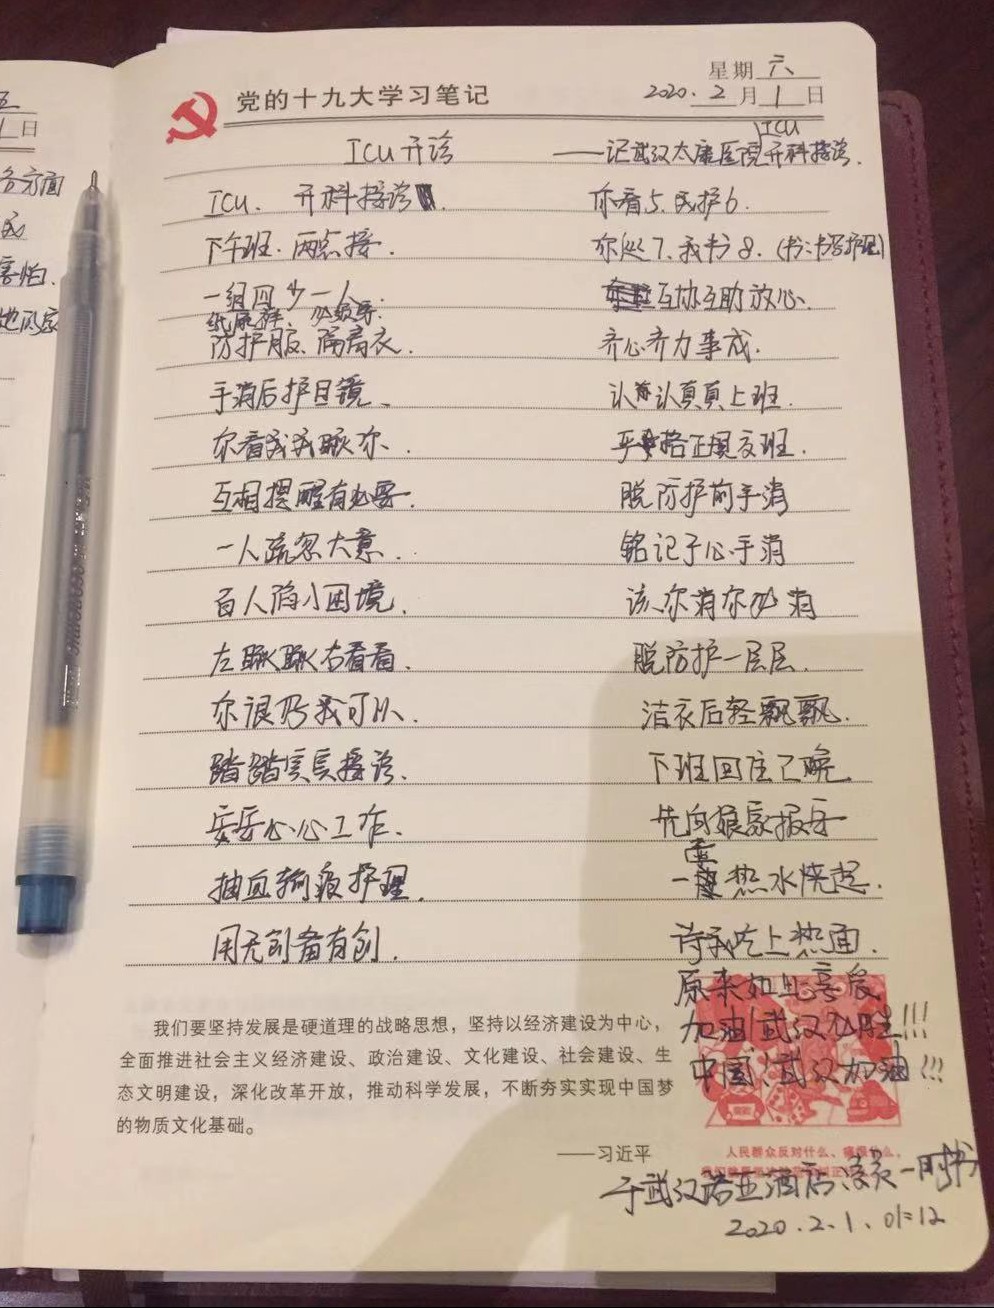 五
1日
各方面
害怕.
星期 六
党的十九大学习笔记
2020. 2 月 1 日
ICU开诊
——记武汉太康医院ICU开科接诊.
ICU. 开科接诊.
下午班. 两点接.
一组四少一人.
纸尿裤、必须穿.
防护服、隔离衣.
手消后护目镜、
你看我我瞅你.
互相提醒有必要.
一人疏忽大意.
百人陷小困境.
左瞅瞅右看看.
你很好我可以.
踏踏实实接诊.
安安心心工作.
抽血输液护理.
用无创备有创.
你看5.我护6.
你处7.我书8.(书:书写护理)
互协互助放心.
齐心齐力事成.
认认真真上班.
严格正规交班.
脱防护前手消
铭记于心手消
该你消你必消
脱防护一层层.
洁衣后轻飘飘.
下班回住已晚
先向娘家报平
一壶热水烧起.
待我吃上热面.
原来如此享受
加油!武汉必胜!!!
中国、武汉加油!!!
我们要坚持发展是硬道理的战略思想，坚持以经济建设为中心，
全面推进社会主义经济建设、政治建设、文化建设、社会建设、生
态文明建设，深化改革开放，推动科学发展，不断夯实实现中国梦
的物质文化基础。
——习近平
人民群众反对什么、痛恨什么，
于武汉诺亚酒店、凌晨一时书
2020.2.1、01:12